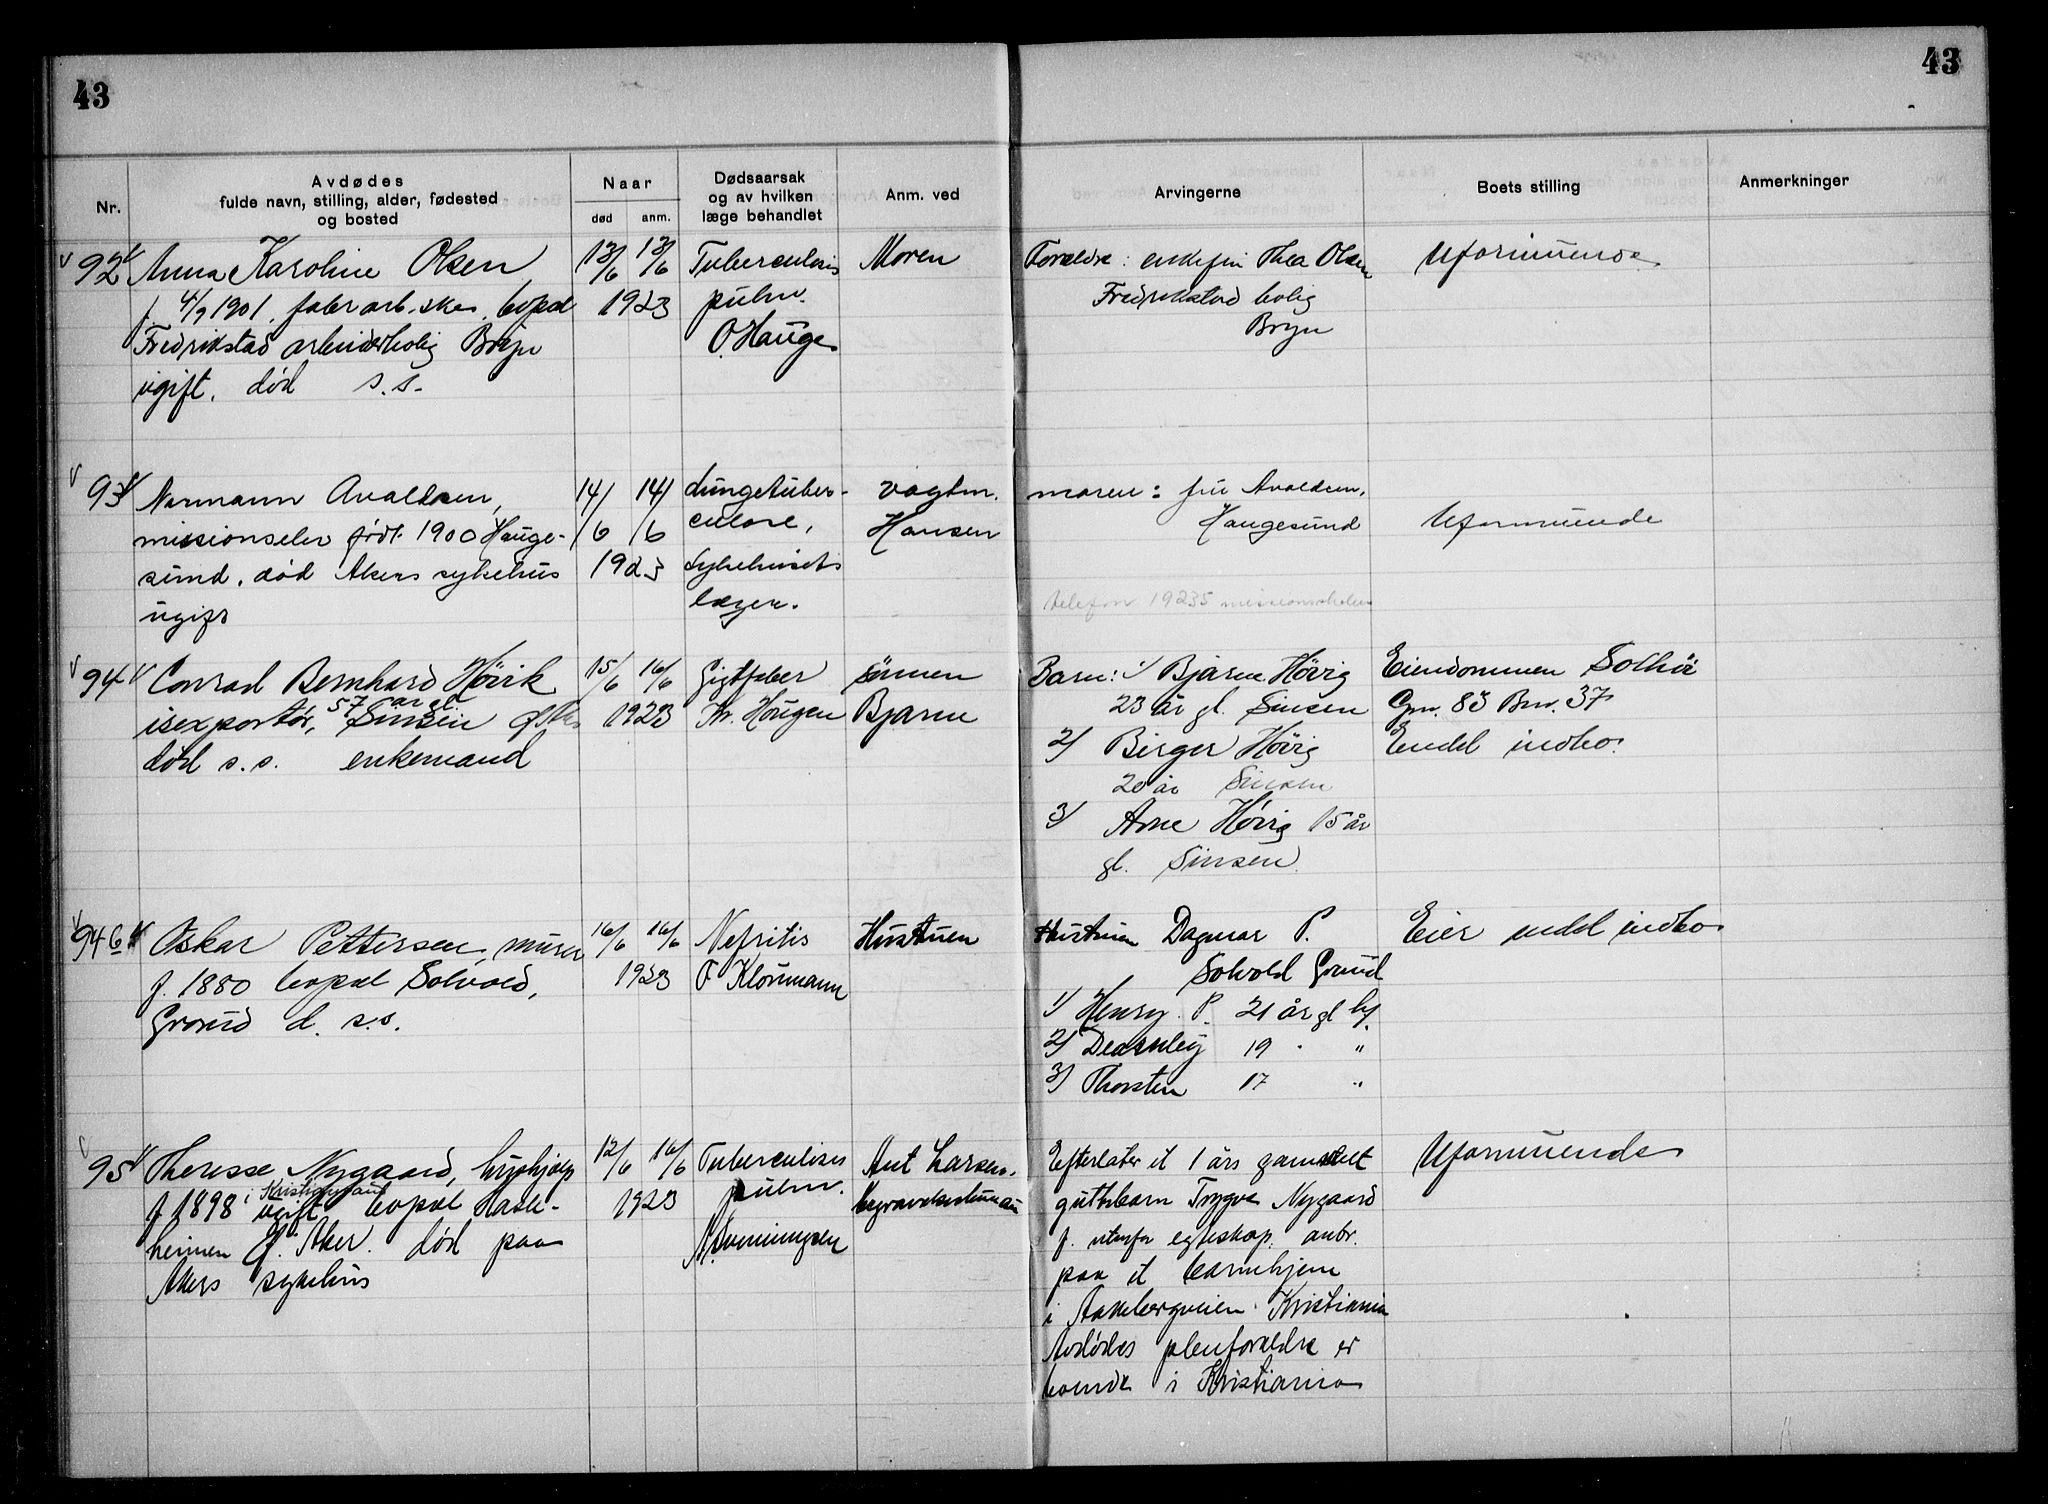 43
43
Nr.
Avdødes
fulde navn, stilling, alder, fødested
og bosted
Naar
død
anm.
Dødsaarsak
og av hvilken
læge behandlet
Anm. ved
Arvingerne
Boets stilling
Anmerkninger
92 Anna Karoline Olsen
f. 4/9 1901, fabr arb. ske, bopæl
Fredrikstad arbeiderbolig Bryn
ugift. død s.s.
13/6 13/6
1923
Tuberculosis
pulm.
O. Hauge
Moren
Forældre: enkefru Thea Olsen
Fredrikstad bolig
Bryn
Uformuende
93 Normann Avaldsen,
missionselev født 1900 Hauge-
sund. død Akers sykehus
ugift
14/6 14/6
1923
Lungetuber-
culose,
Sykehusets
læger.
vagtm.
Hansen
moren: fru Avaldsen,
Haugesund
telefon 19235 missionsskolen
Uformuende
94 Conrad Bernhard Hövik
isexportör, 57 år gl. Sinsen
død s.s. enkemand
15/6 16/6
1923
Gigtfeber
Kr. Hougen
Sönnen
Bjarne
Barn: 1/ Bjarne Hövig
23 år gl. Sinsen
2/ Birger Hövig
20 år Sinsen
3/ Arne Hövig 15 år
gl. Sinsen
Eiendommen Solhöi
Gnr. 83 Bnr. 37
Endel indbo.
94b Oskar Pettersen, murer
f. 1880 bopæl Solvold,
Grorud d. s.s.
16/6 16/6
1923
Nefritis
F Kloumann
Hustruen
Hustruen Dagmar P.
Solvold Grorud
1/ Henry P. 21 år gl hj.
2/ 19 "
3/ Thorsten 17 "
Eier endel indbo
95 Therese Nygaard, hushjælp
f 1898 i Kristiansand ugift, bopæl Hasle-
heimen Ø. Aker. død paa
Akers sykehus
12/6 16/6
1923
Tuberculosis
pulm.
Ant Larsen
Efterlater et 1 års gammelt
guttebarn Trygve Nygaard
f. utenfor egteskap. anbr.
paa et barnehjem
i Aakebergveien Kristiania
Avdødes pleieforældre er
boende i Kristiania
Uformuende